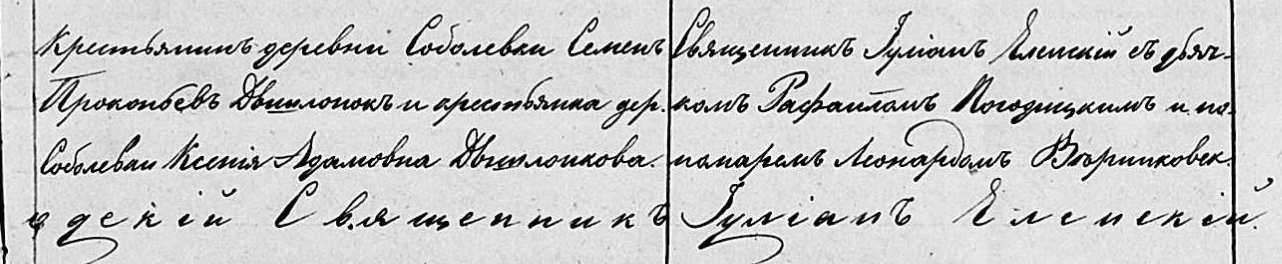 Крестьянинъ деревни Соболевки Семенъ
Прокопьевъ Двилопокъ и крестьянка дер.
Соболевки Ксенія Адамовна Двилопкова.
Священникъ Іуліанъ Еленскій съ дьяч-
комъ Рафаиломъ Погодицкимъ и по-
номаремъ Леонардомъ
дскій Священникъ Іуліанъ Еленскій.